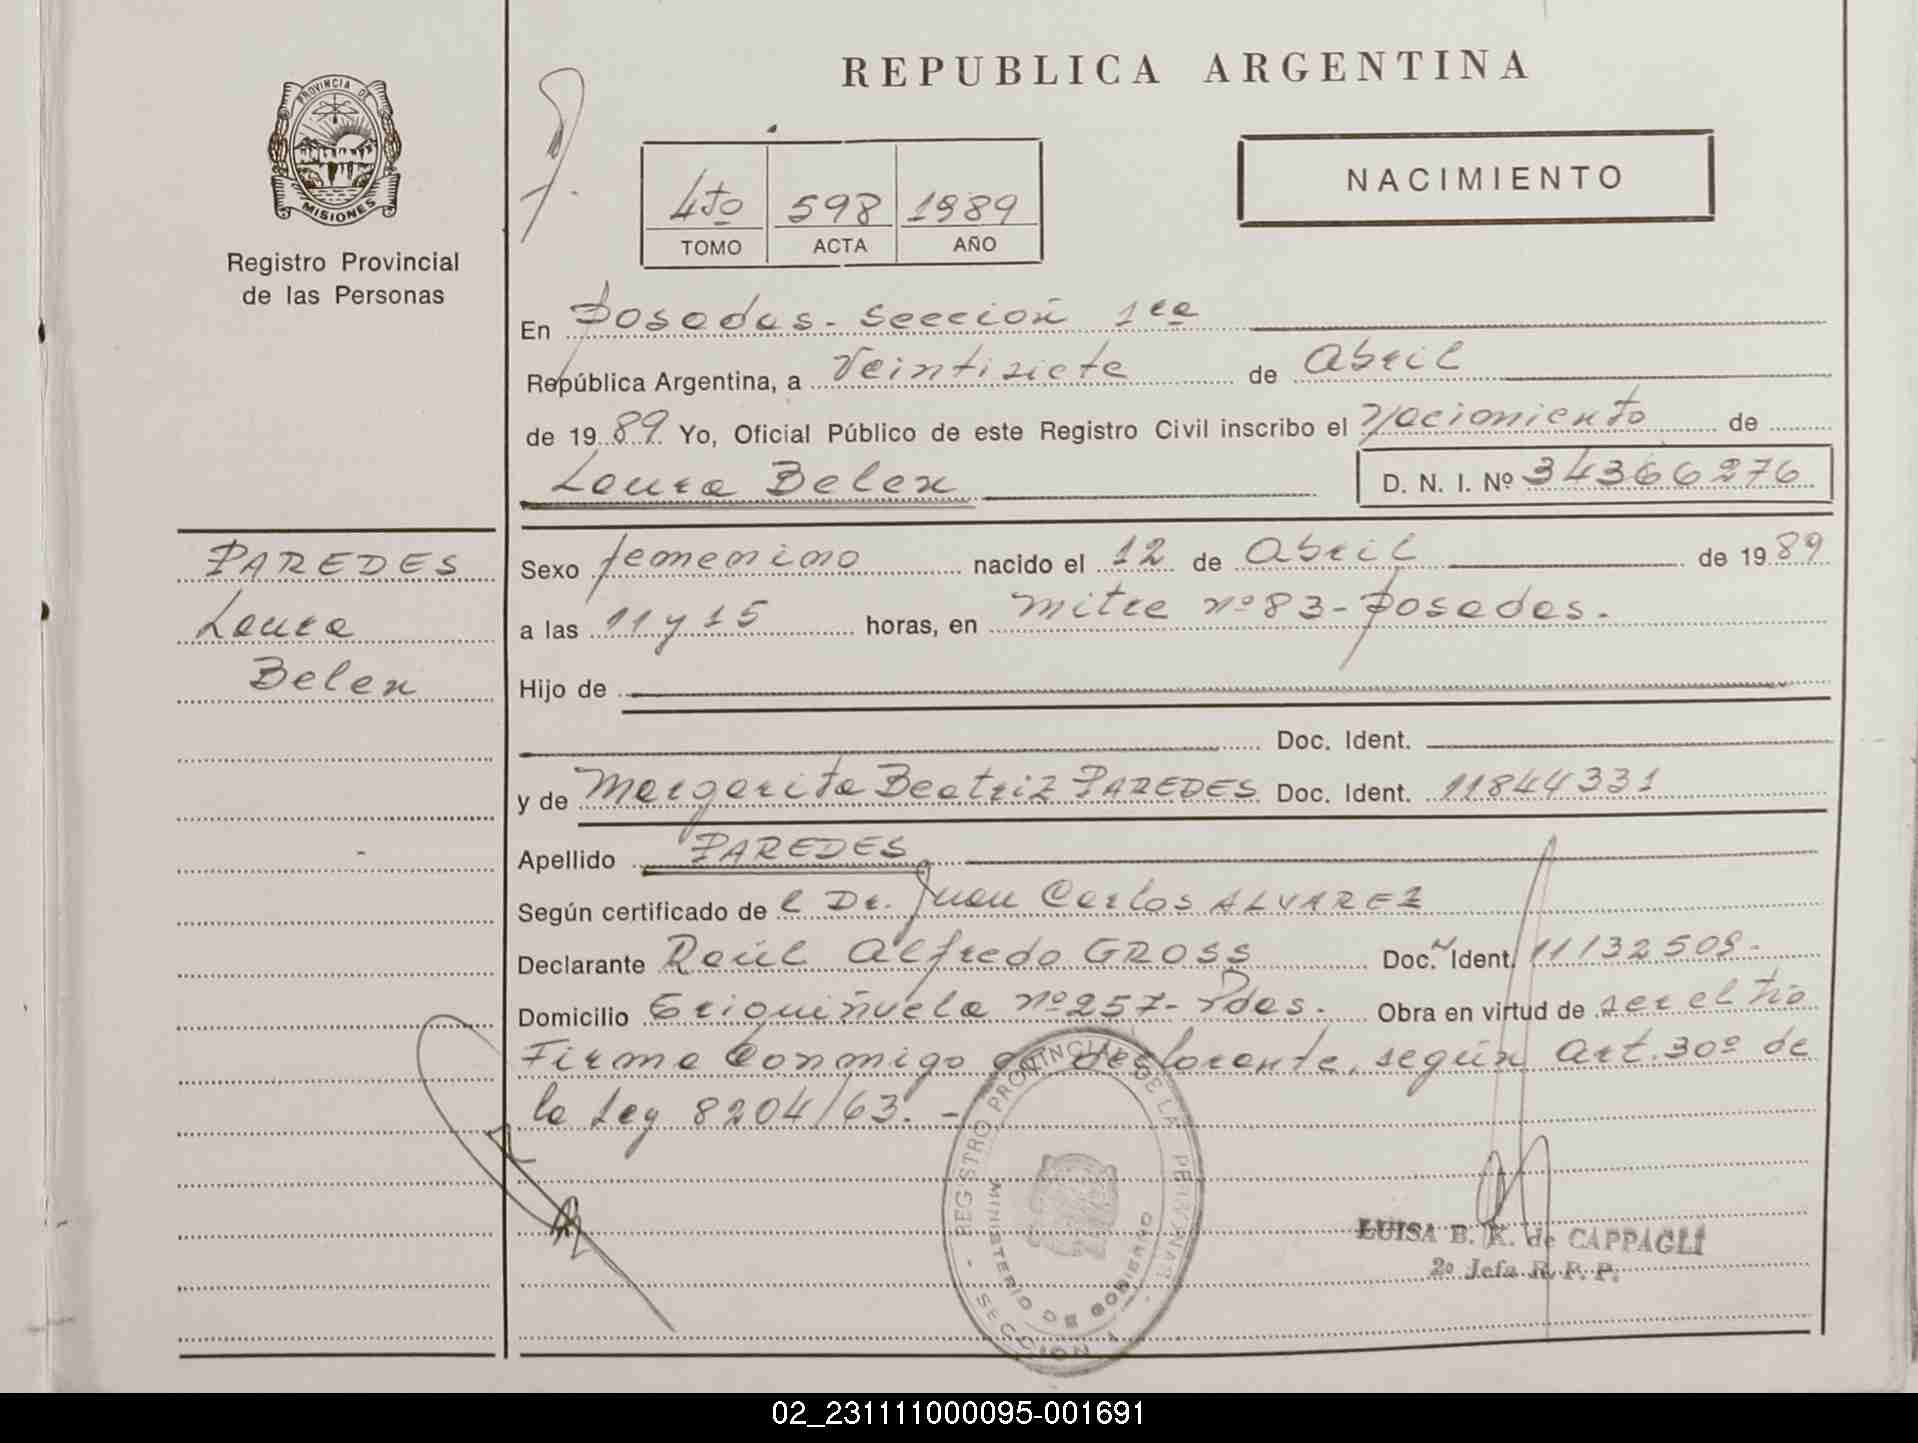 PROVINCIA DE
MISIONES
Registro Provincial
de las Personas
REPUBLICA ARGENTINA
4to 598 1989
TOMO ACTA AÑO
NACIMIENTO
En Posadas - Sección 1ra
República Argentina, a Veintisiete de Abril
de 1989 Yo, Oficial Público de este Registro Civil inscribo el Nacimiento de
Laura Belen D. N. I. Nº 34366276
PAREDES
Laura
Belen
Sexo femenino nacido el 12 de Abril de 1989
a las 11 y 15 horas, en Mitre nº 83 - Posadas.
Hijo de
Doc. Ident.
y de Margarita Beatriz PAREDES Doc. Ident. 11844331
Apellido PAREDES
Según certificado del Dr. Juan Carlos ALVAREZ
Declarante Raúl Alfredo GROSS Doc. Ident. 11132509-
Domicilio nº 257 - Pdas. Obra en virtud de ser el tío
Firma Conmigo el declarante, según Art. 30º de
la Ley 8204/63. -
REGISTRO PROVINCIAL DE LA
MINISTERIO DE GOBIERNO
SECCION
LUISA B. K. de CAPPAGLI
2º Jefa R. P. P.
02_231111000095-001691